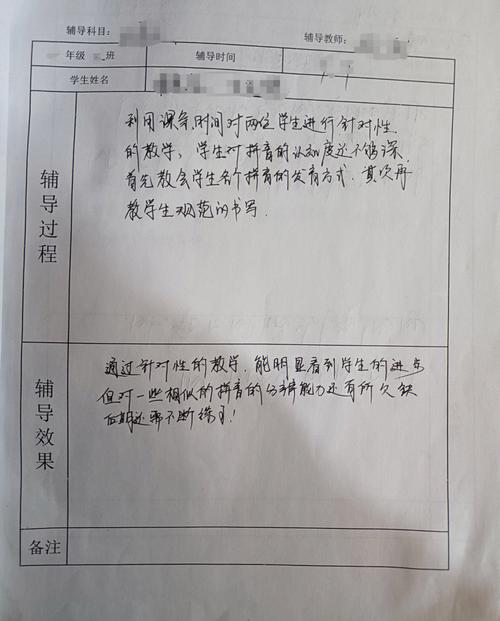 辅导科目：
辅导教师：
年级 班 辅导时间
学生姓名
辅导过程
利用课余时间对两位学生进行针对性
的教学，学生对拼音的认知度还不够深，
首先教会学生各个拼音的发音方式，其次再
教学生规范的书写．
辅导效果
通过针对性的教学，能明显看到学生的进步
但对一些相似的拼音的分辨能力还有所欠缺
后期还需不断练习！
备注